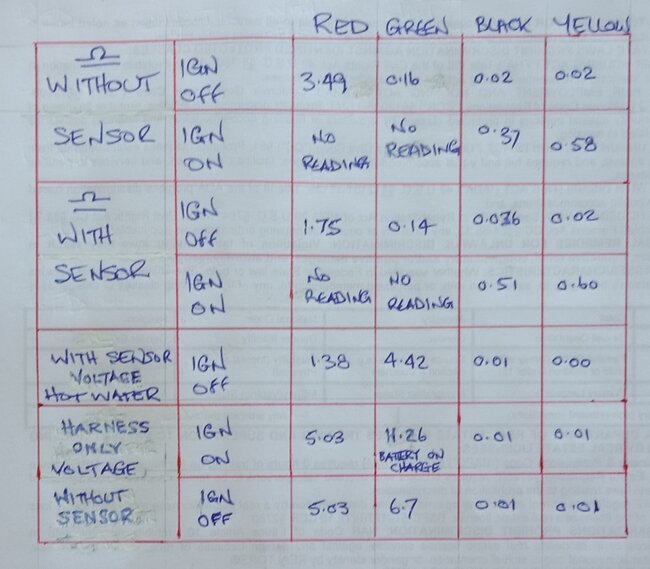 RED GREEN BLACK YELLOW
Ω WITHOUT IGN OFF 3.49 0.16 0.02 0.02
SENSOR IGN ON NO READING NO READING 0.37 0.58
Ω WITH IGN OFF 1.75 0.14 0.036 0.02
SENSOR IGN ON NO READING NO READING 0.51 0.60
WITH SENSOR VOLTAGE HOT WATER IGN OFF 1.38 4.42 0.01 0.00
HARNESS ONLY VOLTAGE IGN ON 5.03 11.26 BATERY ON CHARGE 0.01 0.01
WITHOUT SENSOR IGN OFF 5.03 6.7 0.01 0.01